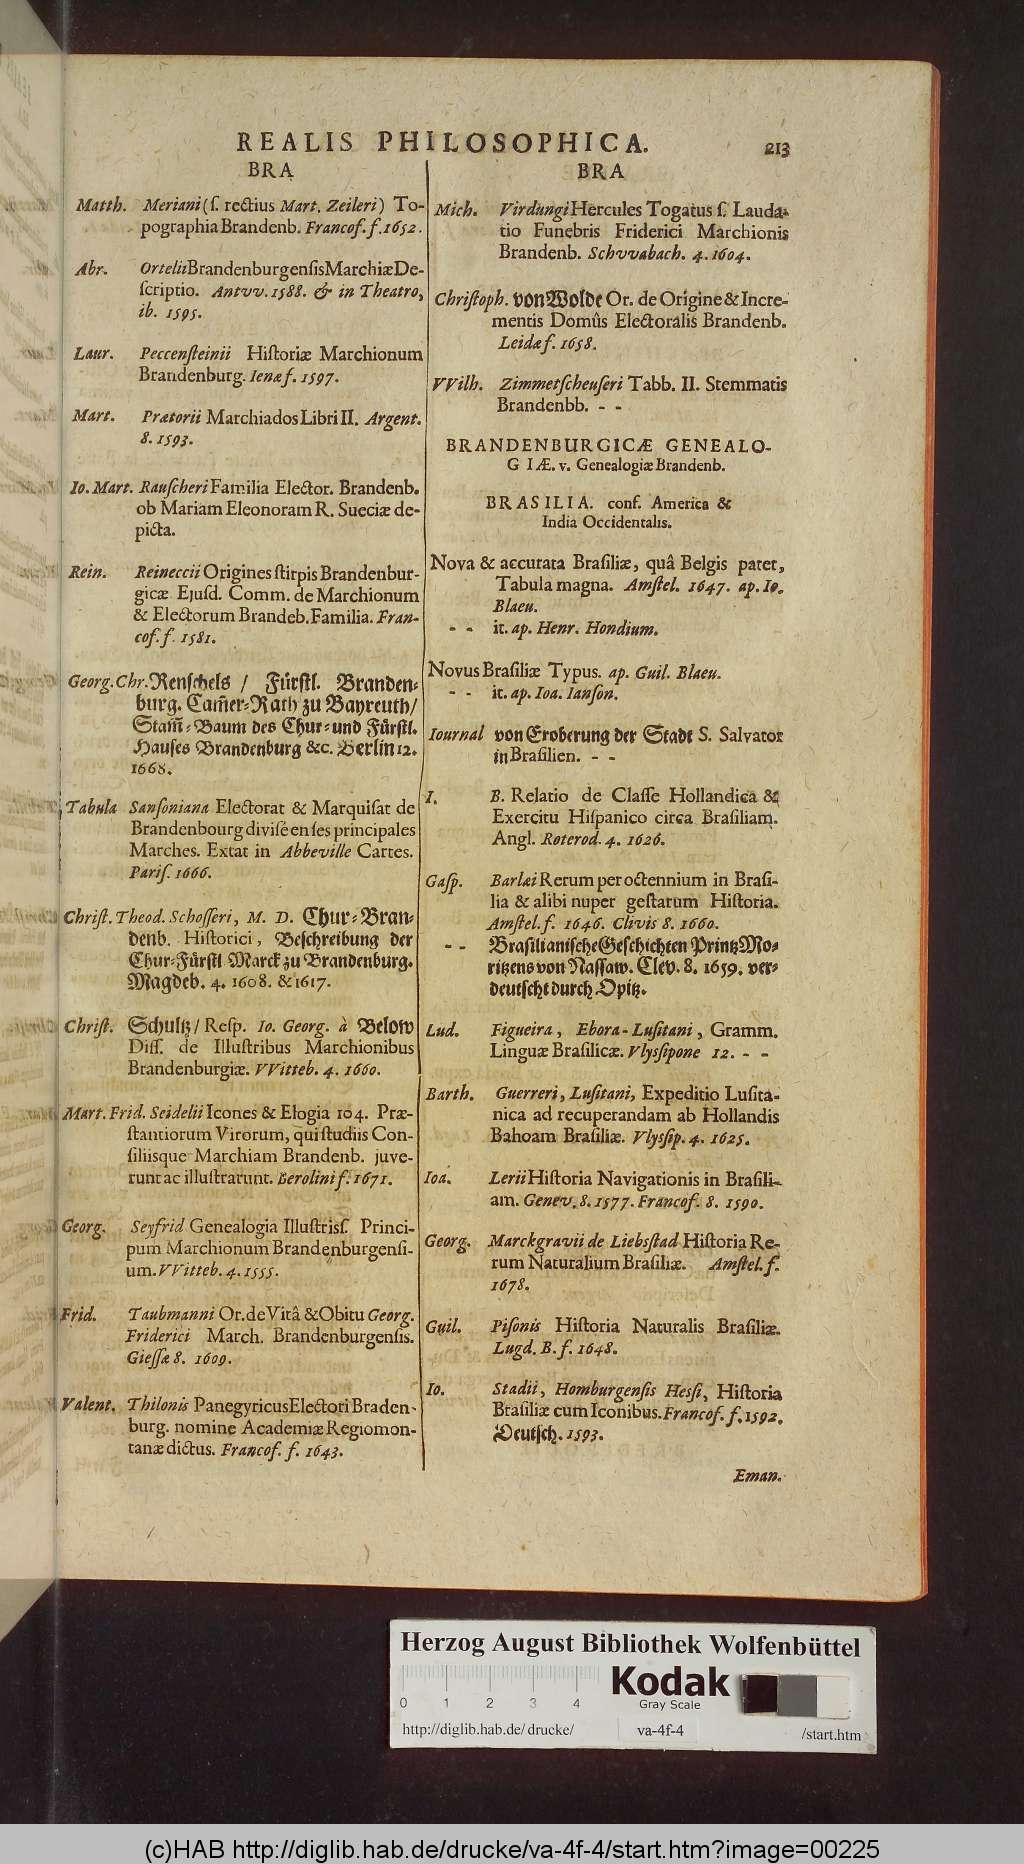 REALIS PHILOSOPHICA. 213
BRA
Matth. Meriani (ſ. rectius Mart. Zeileri) To-
pographia Brandenb. Francof. f. 1652.
Abr. Ortelii Brandenburgenſis Marchiæ De-
ſcriptio. Antvv. 1588. & in Theatro,
ib. 1595.
Laur. Peccenſteinii Hiſtoriæ Marchionum
Brandenburg. Ienæ f. 1597.
Mart. Prætorii Marchiados Libri II. Argent.
8. 1593.
Io. Mart. Rauſcheri Familia Elector. Brandenb.
ob Mariam Eleonoram R. Sueciæ de-
picta.
Rein. Reineccii Origines ſtirpis Brandenbur-
gicæ Ejuſd. Comm. de Marchionum
& Electorum Brandeb. Familia. Fran-
cof. f. 1581.
Georg. Chr. Renſchels / Fürſtl. Branden-
burg. Cam̃er-Rath zu Bayreuth/
Stam̃-Baum des Chur- und Fürſtl.
Hauſes Brandenburg &c. Berlin 12.
1668.
Tabula Sanſoniana Electorat & Marquiſat de
Brandenbourg diviſé en ſes principales
Marches. Extat in Abbeville Cartes.
Pariſ. 1666.
Chriſt. Theod. Schoſſeri, M. D. Chur-Bran-
denb. Hiſtorici, Beſchreibung der
Chur-Fürſtl Marck zu Brandenburg.
Magdeb. 4. 1608. & 1617.
Chriſt. Schultz/ Reſp. Io. Georg. à Below
Diſſ. de Illuſtribus Marchionibus
Brandenburgiæ. VVitteb. 4. 1660.
Mart. Frid. Seidelii Icones & Elogia 104. Præ-
ſtantiorum Virorum, qui ſtudiis Con-
ſiliisque Marchiam Brandenb. juve-
runt ac illuſtrarunt. Berolini f. 1671.
Georg. Seyfrid Genealogia Illuſtriſſ. Princi-
pum Marchionum Brandenburgenſi-
um. VVitteb. 4. 1555.
Frid. Taubmanni Or. de Vitâ & Obitu Georg.
Friderici March. Brandenburgenſis.
Gieſſæ 8. 1609.
Valent. Thilonis Panegyricus Electori Braden-
burg. nomine Academiæ Regiomon-
tanæ dictus. Francof. f. 1643.
BRA
Mich. Virdungi Hercules Togatus ſ. Lauda-
tio Funebris Friderici Marchionis
Brandenb. Schvvabach. 4. 1604.
Chriſtoph. von Wolde Or. de Origine & Incre-
mentis Domûs Electoralis Brandenb.
Leidæ f. 1658.
VVilh. Zimmetſcheuſeri Tabb. II. Stemmatis
Brandenbb. - -
BRANDENBURGICÆ GENEALO-
GIÆ. v. Genealogiæ Brandenb.
BRASILIA. conf. America &
India Occidentalis.
Nova & accurata Braſiliæ, quâ Belgis patet,
Tabula magna. Amſtel. 1647. ap. Io.
Blaeu.
- - it. ap. Henr. Hondium.
Novus Braſiliæ Typus. ap. Guil. Blaeu.
- - it. ap. Ioa. Ianſon.
Iournal von Eroberung der Stadt S. Salvator
in Braſilien. - -
I. B. Relatio de Claſſe Hollandica &
Exercitu Hiſpanico circa Braſiliam.
Angl. Roterod. 4. 1626.
Gaſp. Barlæi Rerum per octennium in Braſi-
lia & alibi nuper geſtarum Hiſtoria.
Amſtel. f. 1646. Clivis 8. 1660.
- - Braſilianiſche Geſchichten Printz Mo-
ritzens von Naſſaw. Clev. 8. 1659. ver-
deutſcht durch Opitz.
Lud. Figueira, Ebora-Luſitani, Gramm.
Linguæ Braſilicæ. Vlyſſipone 12. - -
Barth. Guerreri, Luſitani, Expeditio Luſita-
nica ad recuperandam ab Hollandis
Bahoam Braſiliæ. Vlyſſip. 4. 1625.
Ioa. Lerii Hiſtoria Navigationis in Braſili-
am. Genev. 8. 1577. Francof. 8. 1590.
Georg. Marckgravii de Liebſtad Hiſtoria Re-
rum Naturalium Braſiliæ. Amſtel. f.
1678.
Guil. Piſonis Hiſtoria Naturalis Braſiliæ.
Lugd. B. f. 1648.
Io. Stadii, Homburgenſis Heſſi, Hiſtoria
Braſiliæ cum Iconibus. Francof. f. 1592.
Deutſch. 1593.
Eman.
Herzog August Bibliothek Wolfenbüttel
Kodak
Gray Scale
0 1 2 3 4
http://diglib.hab.de/drucke/ va-4f-4 /start.htm
(c)HAB http://diglib.hab.de/drucke/va-4f-4/start.htm?image=00225